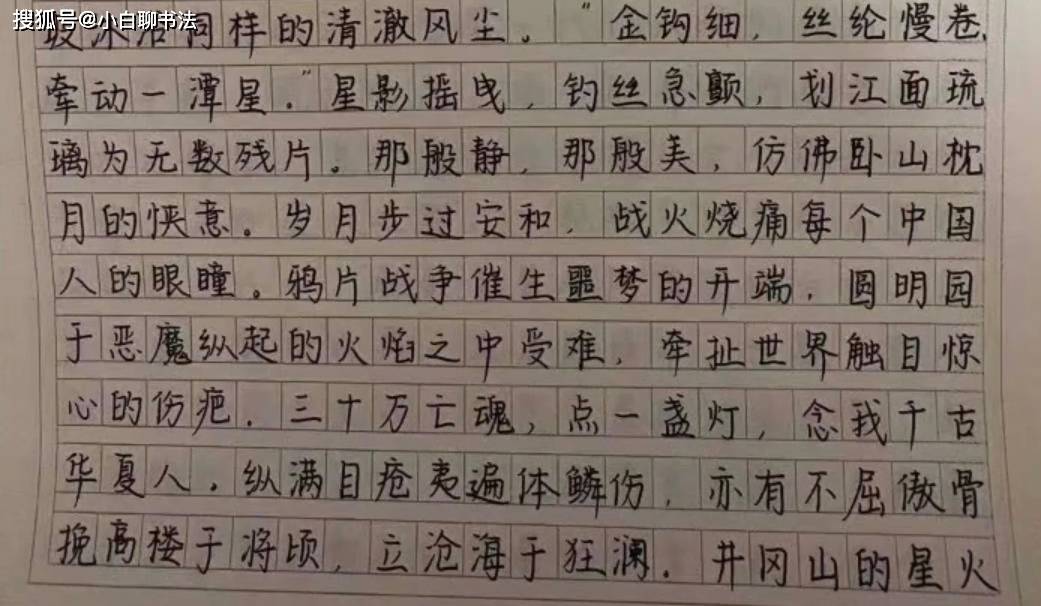 搜狐号@小白聊书法
同样的清澈风尘。“金钩细，丝纶慢卷，
牵动一潭星．”星影摇曳，钓丝急颤，划江面琉
璃为无数残片。那般静，那般美，仿佛卧山枕
月的惬意。岁月步过安和，战火烧痛每个中国
人的眼瞳。鸦片战争催生噩梦的开端，圆明园
于恶魔纵起的火焰之中受难，牵扯世界触目惊
心的伤疤．三十万亡魂，点一盏灯，念我千古
华夏人．纵满目疮夷遍体鳞伤，亦有不屈傲骨
挽高楼于将顷，立沧海于狂澜．井冈山的星火